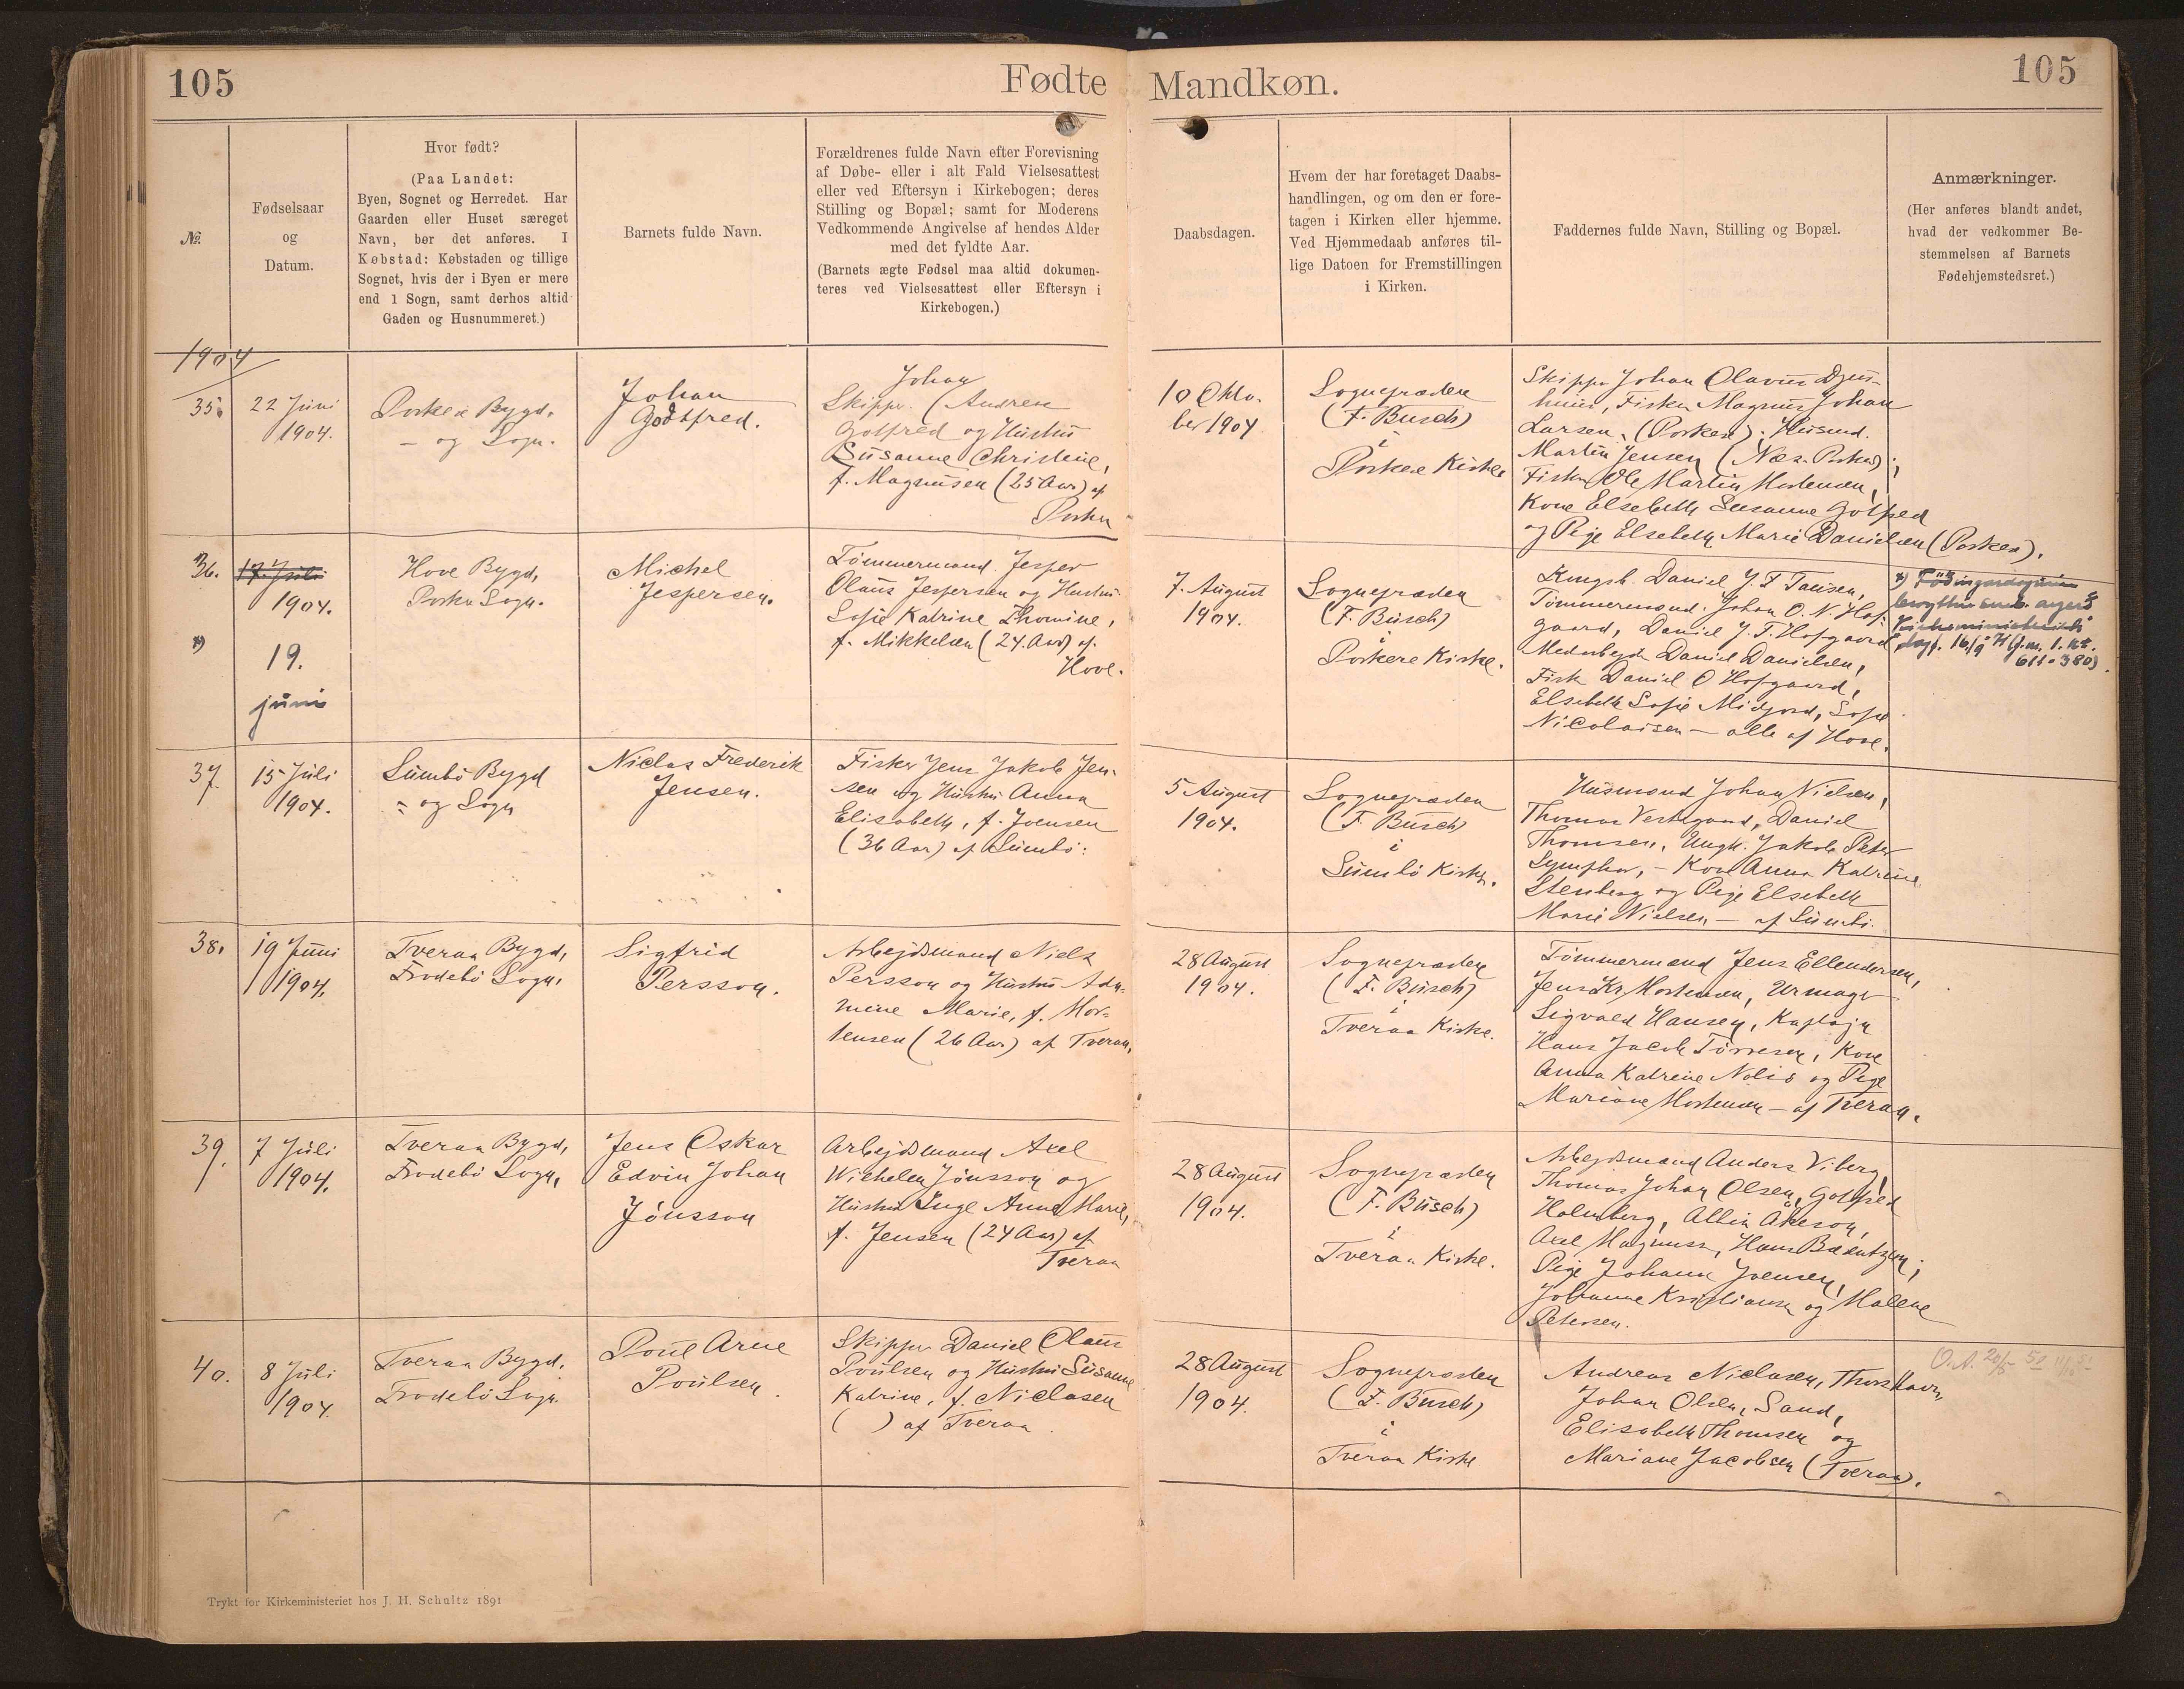 105
Fødte
Mandkøn.
105
№.
Fødselsaar
og
Datum.
Hvor født?
(Paa Landet:
Byen, Sognet og Herredet. Har
Gaarden eller Huset særeget
Navn, bør det anføres. I
Købstad: Købstaden og tillige
Sognet, hvis der i Byen er mere
end 1 Sogn, samt derhos altid
Gaden og Husnummeret.)
Barnets fulde Navn.
Forældrenes fulde Navn efter Forevisning
af Døbe- eller i alt Fald Vielsesattest
eller ved Eftersyn i Kirkebogen; deres
Stilling og Bopæl; samt for Moderens
Vedkommende Angivelse af hendes Alder
med det fyldte Aar.
(Barnets ægte Fødsel maa altid dokumen-
teres ved Vielsesattest eller Eftersyn i
Kirkebogen.)
Daabsdagen.
Hvem der har foretaget Daabs-
handlingen, og om den er fore-
tagen i Kirken eller hjemme.
Ved Hjemmedaab anføres til-
lige Datoen for Fremstillingen
i Kirken.
Faddernes fulde Navn, Stilling og Bopæl.
Anmærkninger.
(Her anføres blandt andet,
hvad der vedkommer Be-
stemmelsen af Barnets
Fødehjemstedsret.)
1904
35.
22 Juni
1904.
Porkere Bygd.
– og Sogn.
Johan
Godtfred.
Johan
Skipper (Andreas
Gotfred og Hustru
Susanne Christine,
f. Magnusen (25 Aar) af
Porkere
10 Okto-
ber 1904
Sognepræsten
(F. Busch)
i
Porkere Kirke
Skipper Johan Olavus
Fisker Magnus Johan
Larsen, (Porkere); Husmd.
Martin Jensen (Næs-Porkere);
Fisker Ole Martin Mortensen,
Kone Elsebeth Susanne Gotfred
og Pige Elsebeth Marie Danielsen (Porkere).
36.
17 Juli
1904.
*)
19.
juni
Hove Bygd,
Porkere Sogn.
Michel
Jespersen.
Tømmermand Jesper
Olaus Jespersen og Hustru
Sofie Katrine Thomine,
f. Mikkelsen (24 Aar) af
Hove.
7. August
1904.
Sognepræsten
(F. Busch)
i
Porkere Kirke.
Kongsb. Daniel J. F. Tausen,
Tømmermænd. Johan O. N. Hof-
gaard, Daniel J. T. Hofgaard
Daniel Danielsen,
Fisk Daniel O Hofgaard,
Elsebeth Sofie Midjord, Sofie
Nicolaisen – alle af Hove.
*) Föðingardagurin
Kirkeministeriets
16/9
37.
15 Juli
1904.
Sumbø Bygd
= og Sogn
Niclas Frederik
Jensen.
Fisker Jens Jakob Jen-
sen og Hustru Anna
Elisabeth, f. Joensen
(36 Aar) af Sumbø.
5 August
1904.
Sognepræsten
(F. Busch)
i
Sumbø Kirke.
Husmænd Johan Nielsen,
Thomas Vestergaard, Daniel
Thomsen, Ungk. Jakob Peter
– Kone Anna Katrine
Stenberg og Pige Elsebeth
Marie Nielsen – af Sumbø.
38.
19 Juni
1904.
Tveraa Bygd,
Frodebø Sogn.
Sigfrid
Persson.
Arbejdsmand Niels
Persson og Hustru Ada-
mine Marie, f. Mor-
tensen (26 Aar) af Tveraa.
28 August
1904.
Sognepræsten
(F. Busch)
i
Tveraa Kirke.
Tømmermand Jens Ellendersen,
Jens Kr. Mortensen, Urmager
Sigvald Hansen, Kaptajn
Hans Jacob Tørresen, Kone
Anna Katrine Nolsø og Pige
Mariane Mortensen – af Tveraa.
39.
7 Juli
1904.
Tveraa Bygd,
Frodebø Sogn,
Jens Oskar
Edvin Johan
Jönsson
Arbejdsmand Axel
Wilhelm Jönsson og
Hustru Inge Anne Marie,
f. Jensen (24 Aar) af
Tveraa
28 August
1904.
Sognepræsten
(F. Busch)
i
Tveraa Kirke.
Arbejdsmænd Anders Viberg,
Thomas Johan Olsen, Gotfred
Holmberg, Albin Åkeson,
Axel Magnuss, Hans Bærentzen;
Pige Johanne Joensen,
Johanne Kristiansen og Malene
Petersen.
40.
8 Juli
1904.
Tveraa Bygd.
Frodebø Sogn.
Poul Arne
Poulsen.
Skipper Daniel Olaus
Poulsen og Hustru Susanne
Katrine, f. Niclasen
( ) af Tveraa.
28 August
1904.
Sognepræsten
(F. Busch)
i
Tveraa Kirke
Andreas Niclasen, Thorshavn,
Johan Olsen, Sand,
Elisabeth Thomsen og
Mariane Jacobsen (Tveraa).
O.A. 20/5 52
Trykt for Kirkeministeriet hos J. H. Schultz 1891